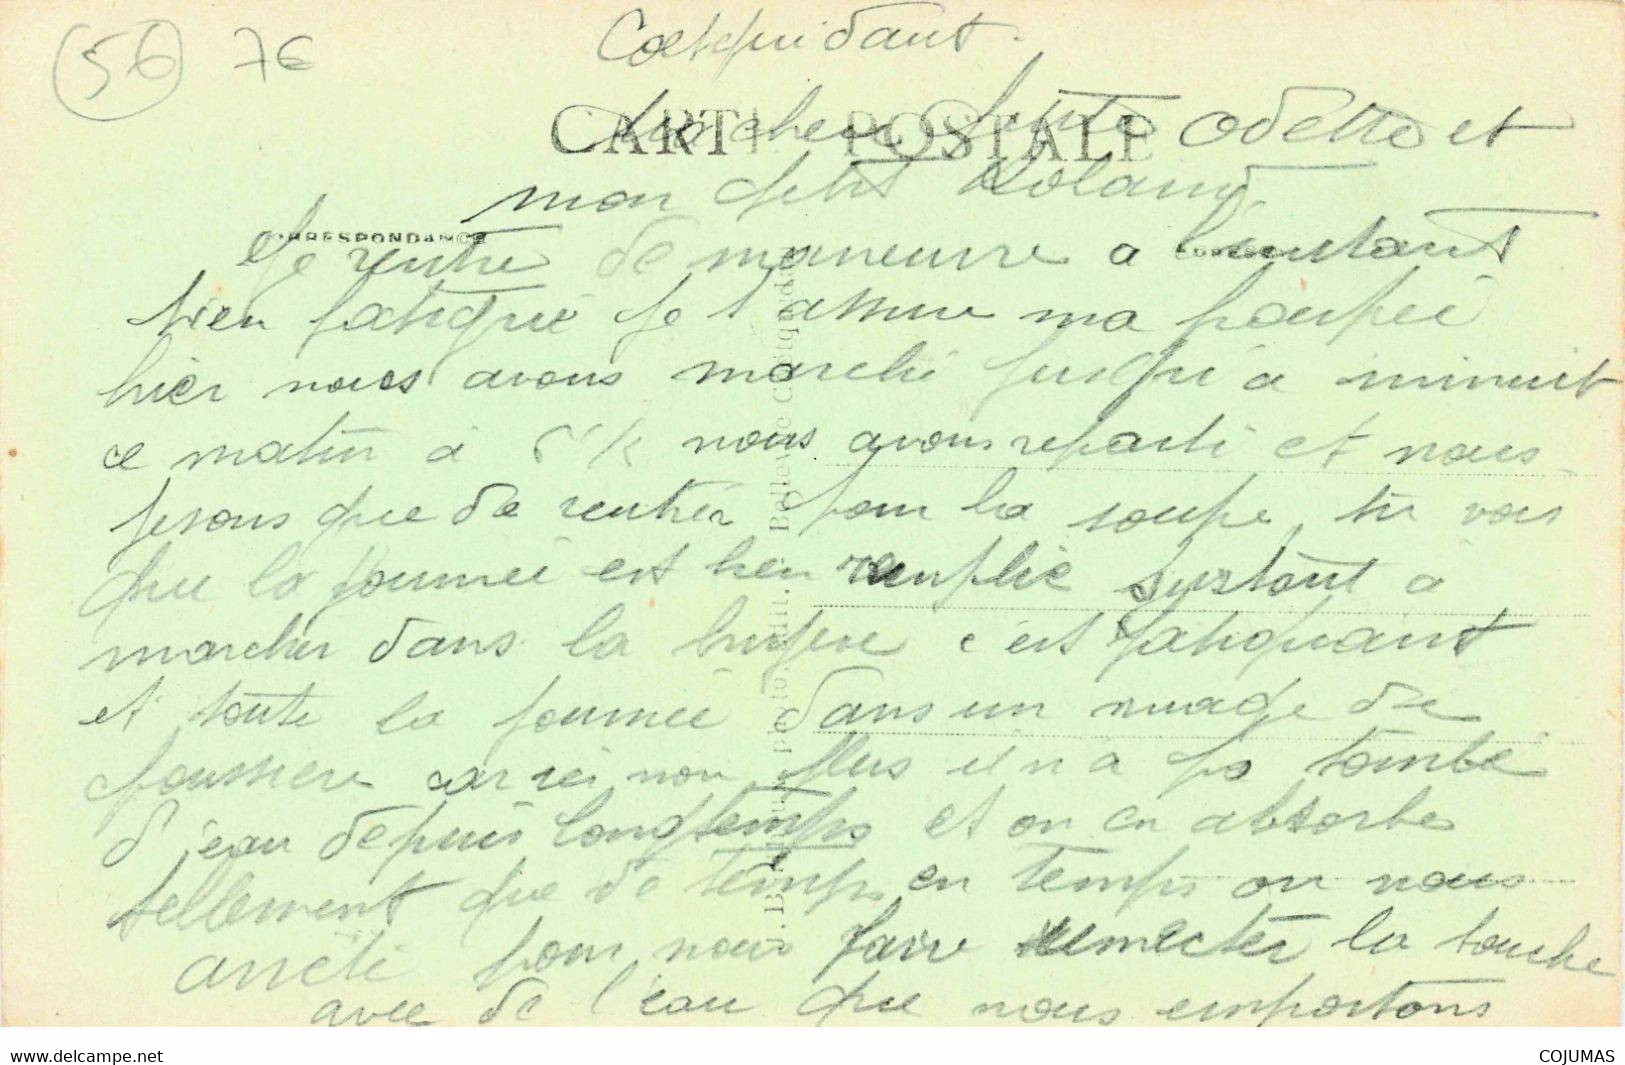 (56) 76
Coetquidant.
CARTE POSTALE
Ma chere petite Odette et
mon petit Roland
CORRESPONDANCE
Je rentre de maneuvre a l'instant
bien fatigué je t'assure ma poupée
hier nous avons marché jusqu'a minuit
ce matin à 5 h nous avons reparti et nous
fesons que de rentrér pour la soupe, tu vois
que la journée est bien remplie surtout a
marcher dans la bruyere c'est fatiguant
et toute la journée dans un nuage de
poussiere car ici non plus il n'a pas tombé
d'eau depuis longtemps et on en absorbe
tellement que de temps en temps on nous
arrete pour nous faire humecter la bouche
avec de l'eau que nous emportons
www.delcampe.net
COJUMAS